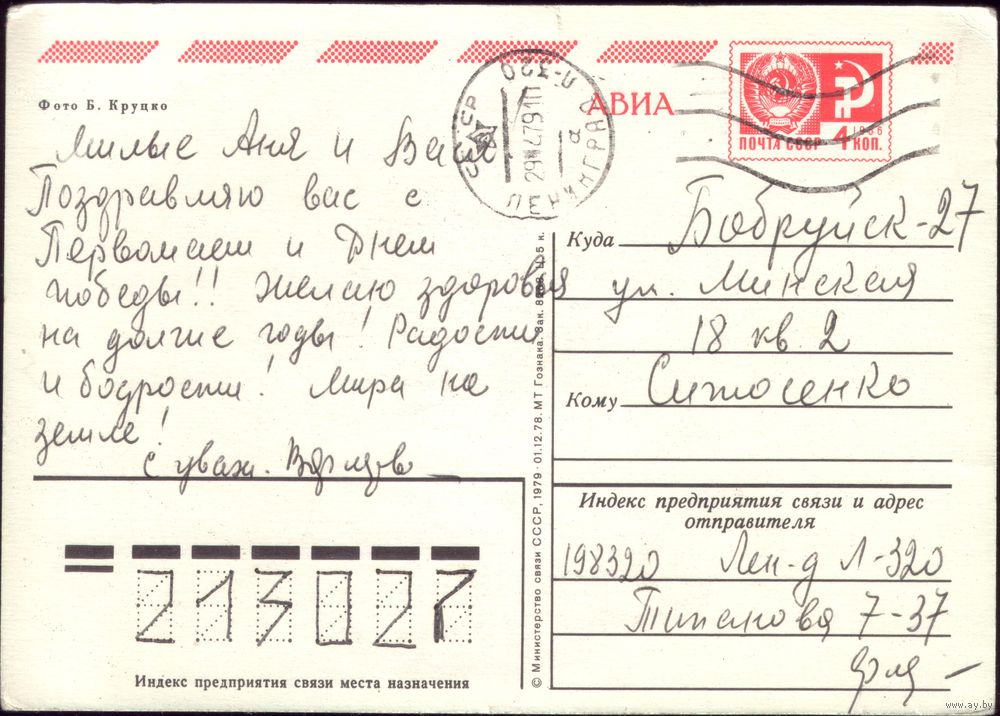 Фото Б. Круцко
Милые Аня и
Поздравляю вас с
Первомаем и Днем
победы!! Желаю здоровья
на долгие годы! Радости
и бодрости! Мира на
земле!
с уваж.
СССР
ЛЕНИНГРАД Л-320
29 4 79 11
а
АВИА
ПОЧТА СССР 4 КОП.
1966
Куда Бобруйск-27
ул. Минская
18 кв. 2
Кому
Индекс предприятия связи и адрес
отправителя
198320 Лен-д Л-320
7-37
213027
Индекс предприятия связи места назначения
© Министерство связи СССР, 1979 · 01.12.78. МТ Гознака. Зак. Ц. 5 к.
www.ay.by